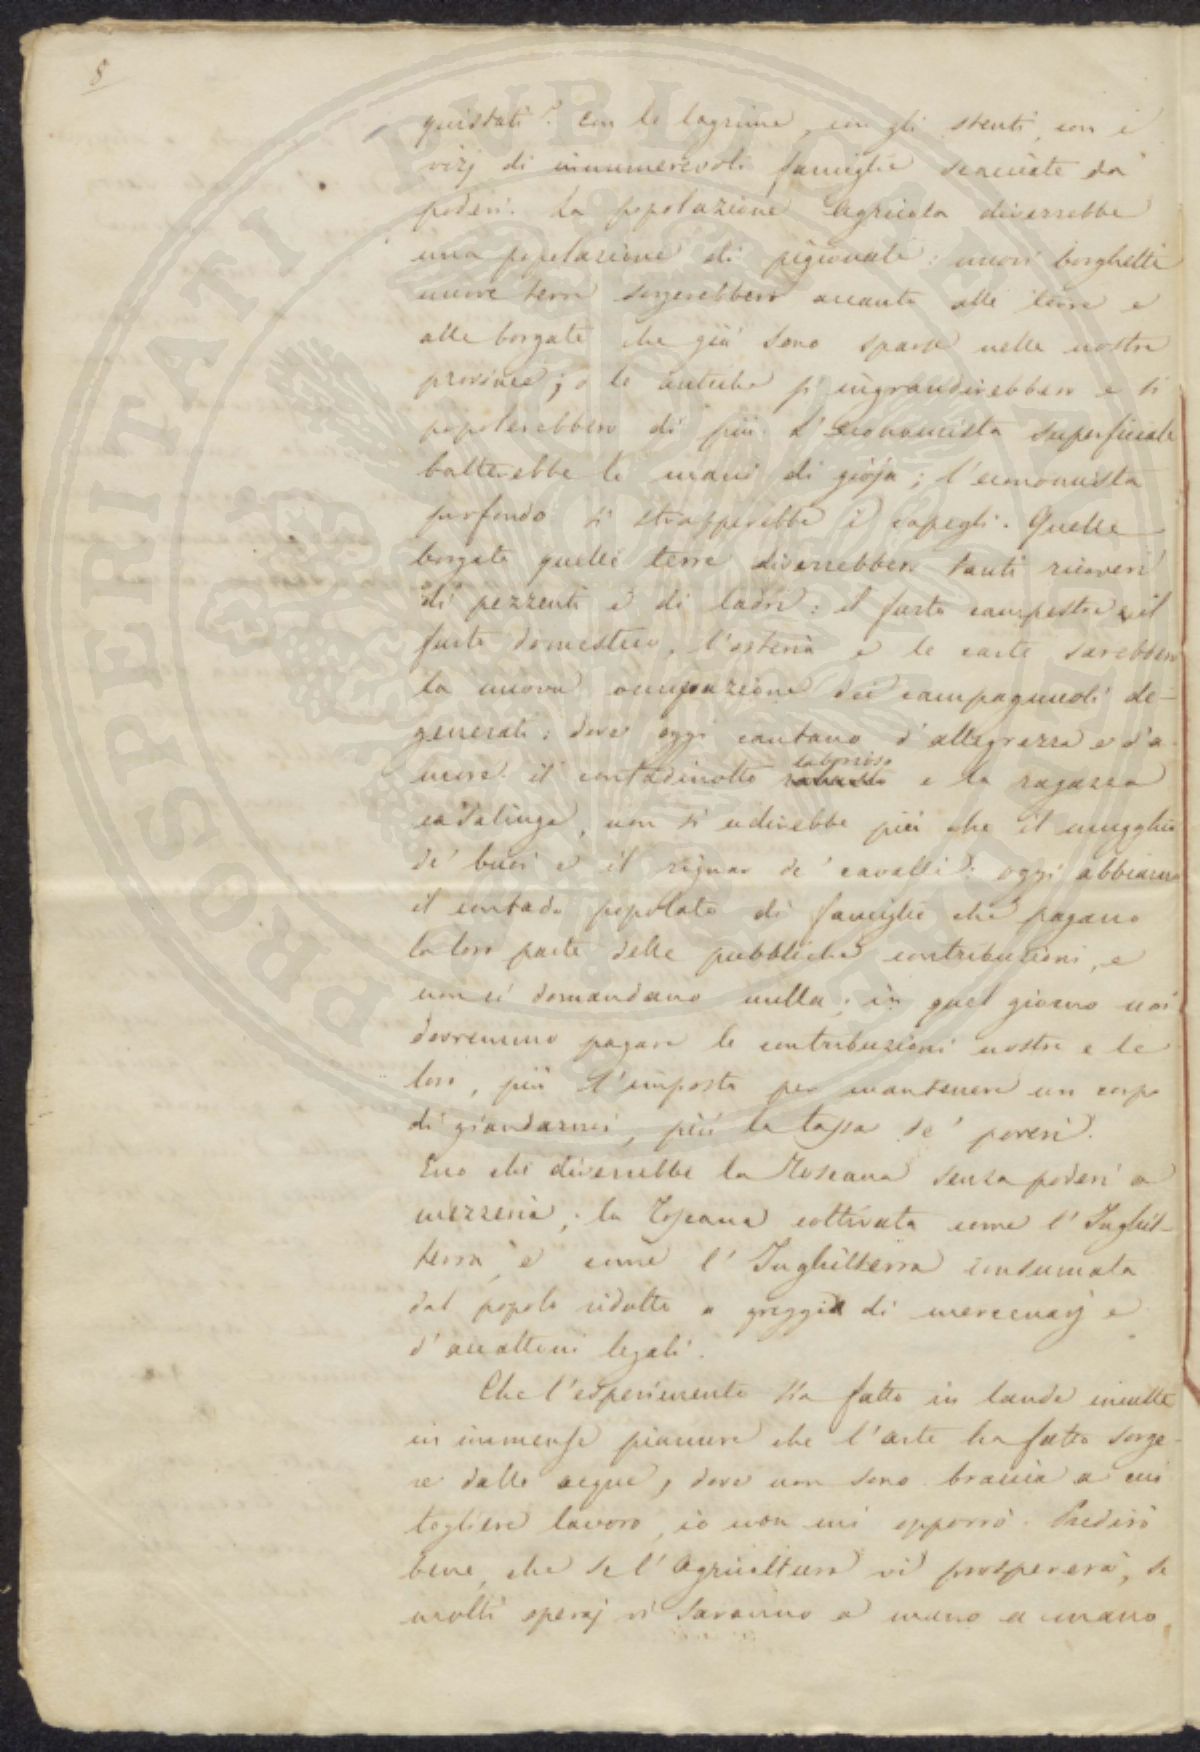 8
quistati? Con le lagrime, con gli stenti, con i
vizj di innumerevoli famiglie scacciate da'
poderi. La popolazione Agricola diverrebbe
una popolazione di pigionali: nuovi borghetti
nuove terre sorgerebbero accanto alle terre e
alle borgate che già sono sparse nelle nostre
provincie; o le antiche s'ingrandirebbero e si
popolerebbero di più. L'Economista superficiale
batterebbe le mani di gioja; l'economista
profondo si strapperebbe i capegli. Quelle
borgate quelle terre diverrebbero tanti ricoveri
di pezzenti e di ladri: il furto campestre, il
furto domestico, l'osteria e le carte sarebbero
la nuova occupazione dei campagnuoli de-
generati: dove oggi cantano d'allegrezza e d'a-
more il contadinotto laborioso e la ragazza
casalinga, non si udirebbe più che il mugghio
de' buoi e il rignar de' cavalli: oggi abbiamo
il contado popolato di famiglie che pagano
la loro parte delle pubbliche contribuzioni, e
non ci domandano nulla; in quel giorno noi
dovremmo pagare le contribuzioni nostre e le
loro, più l'imposta per mantenere un corpo
di giandarmi, più la tassa de' poveri.
Ecco che diverrebbe la Toscana senza poderi a
mezzeria; la Toscana coltivata come l'Inghil-
terra, e come l'Inghilterra consumata
dal popolo ridotto a greggia di mercenarj e
d'accattoni legali.
Che l'esperimento sia fatto in lande incolte
in immense pianure che l'arte ha fatto sorge-
re dalle acque, dove non sono braccia a cui
togliere lavoro, io non mi opporrò. Predirò
bene, che se l'Agricoltura vi prospererà, se
molti operaj vi saranno a mano a mano,
PROSPERITATI PUBLICAE AUGENDAE